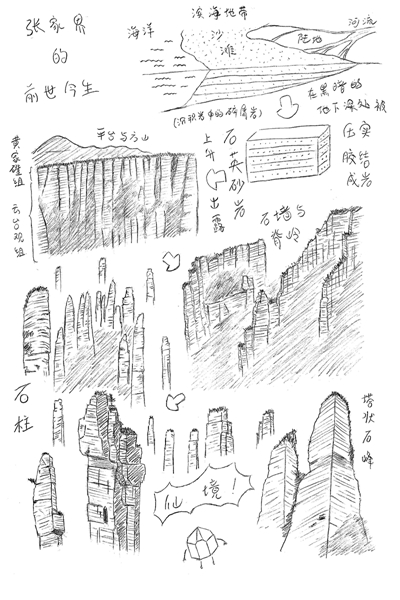 张家界
的
前世今生
滨海地带
海洋
沙
滩
陆地
河流
(沉积岩中的碎屑岩)
在黑暗的
地下深处被
压实
胶结
成岩
石英砂岩
上升出露
平台与方山
黄家磴组 云台观组
石墙与
脊岭
石柱
塔状石峰
仙境!